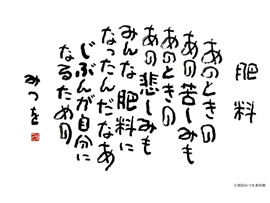 肥料
あのときの
あの苦しみも
あのときの
あの悲しみも
みんな肥料に
なったんだなあ
じぶんが自分に
なるための
みつを
©相田みつを美術館